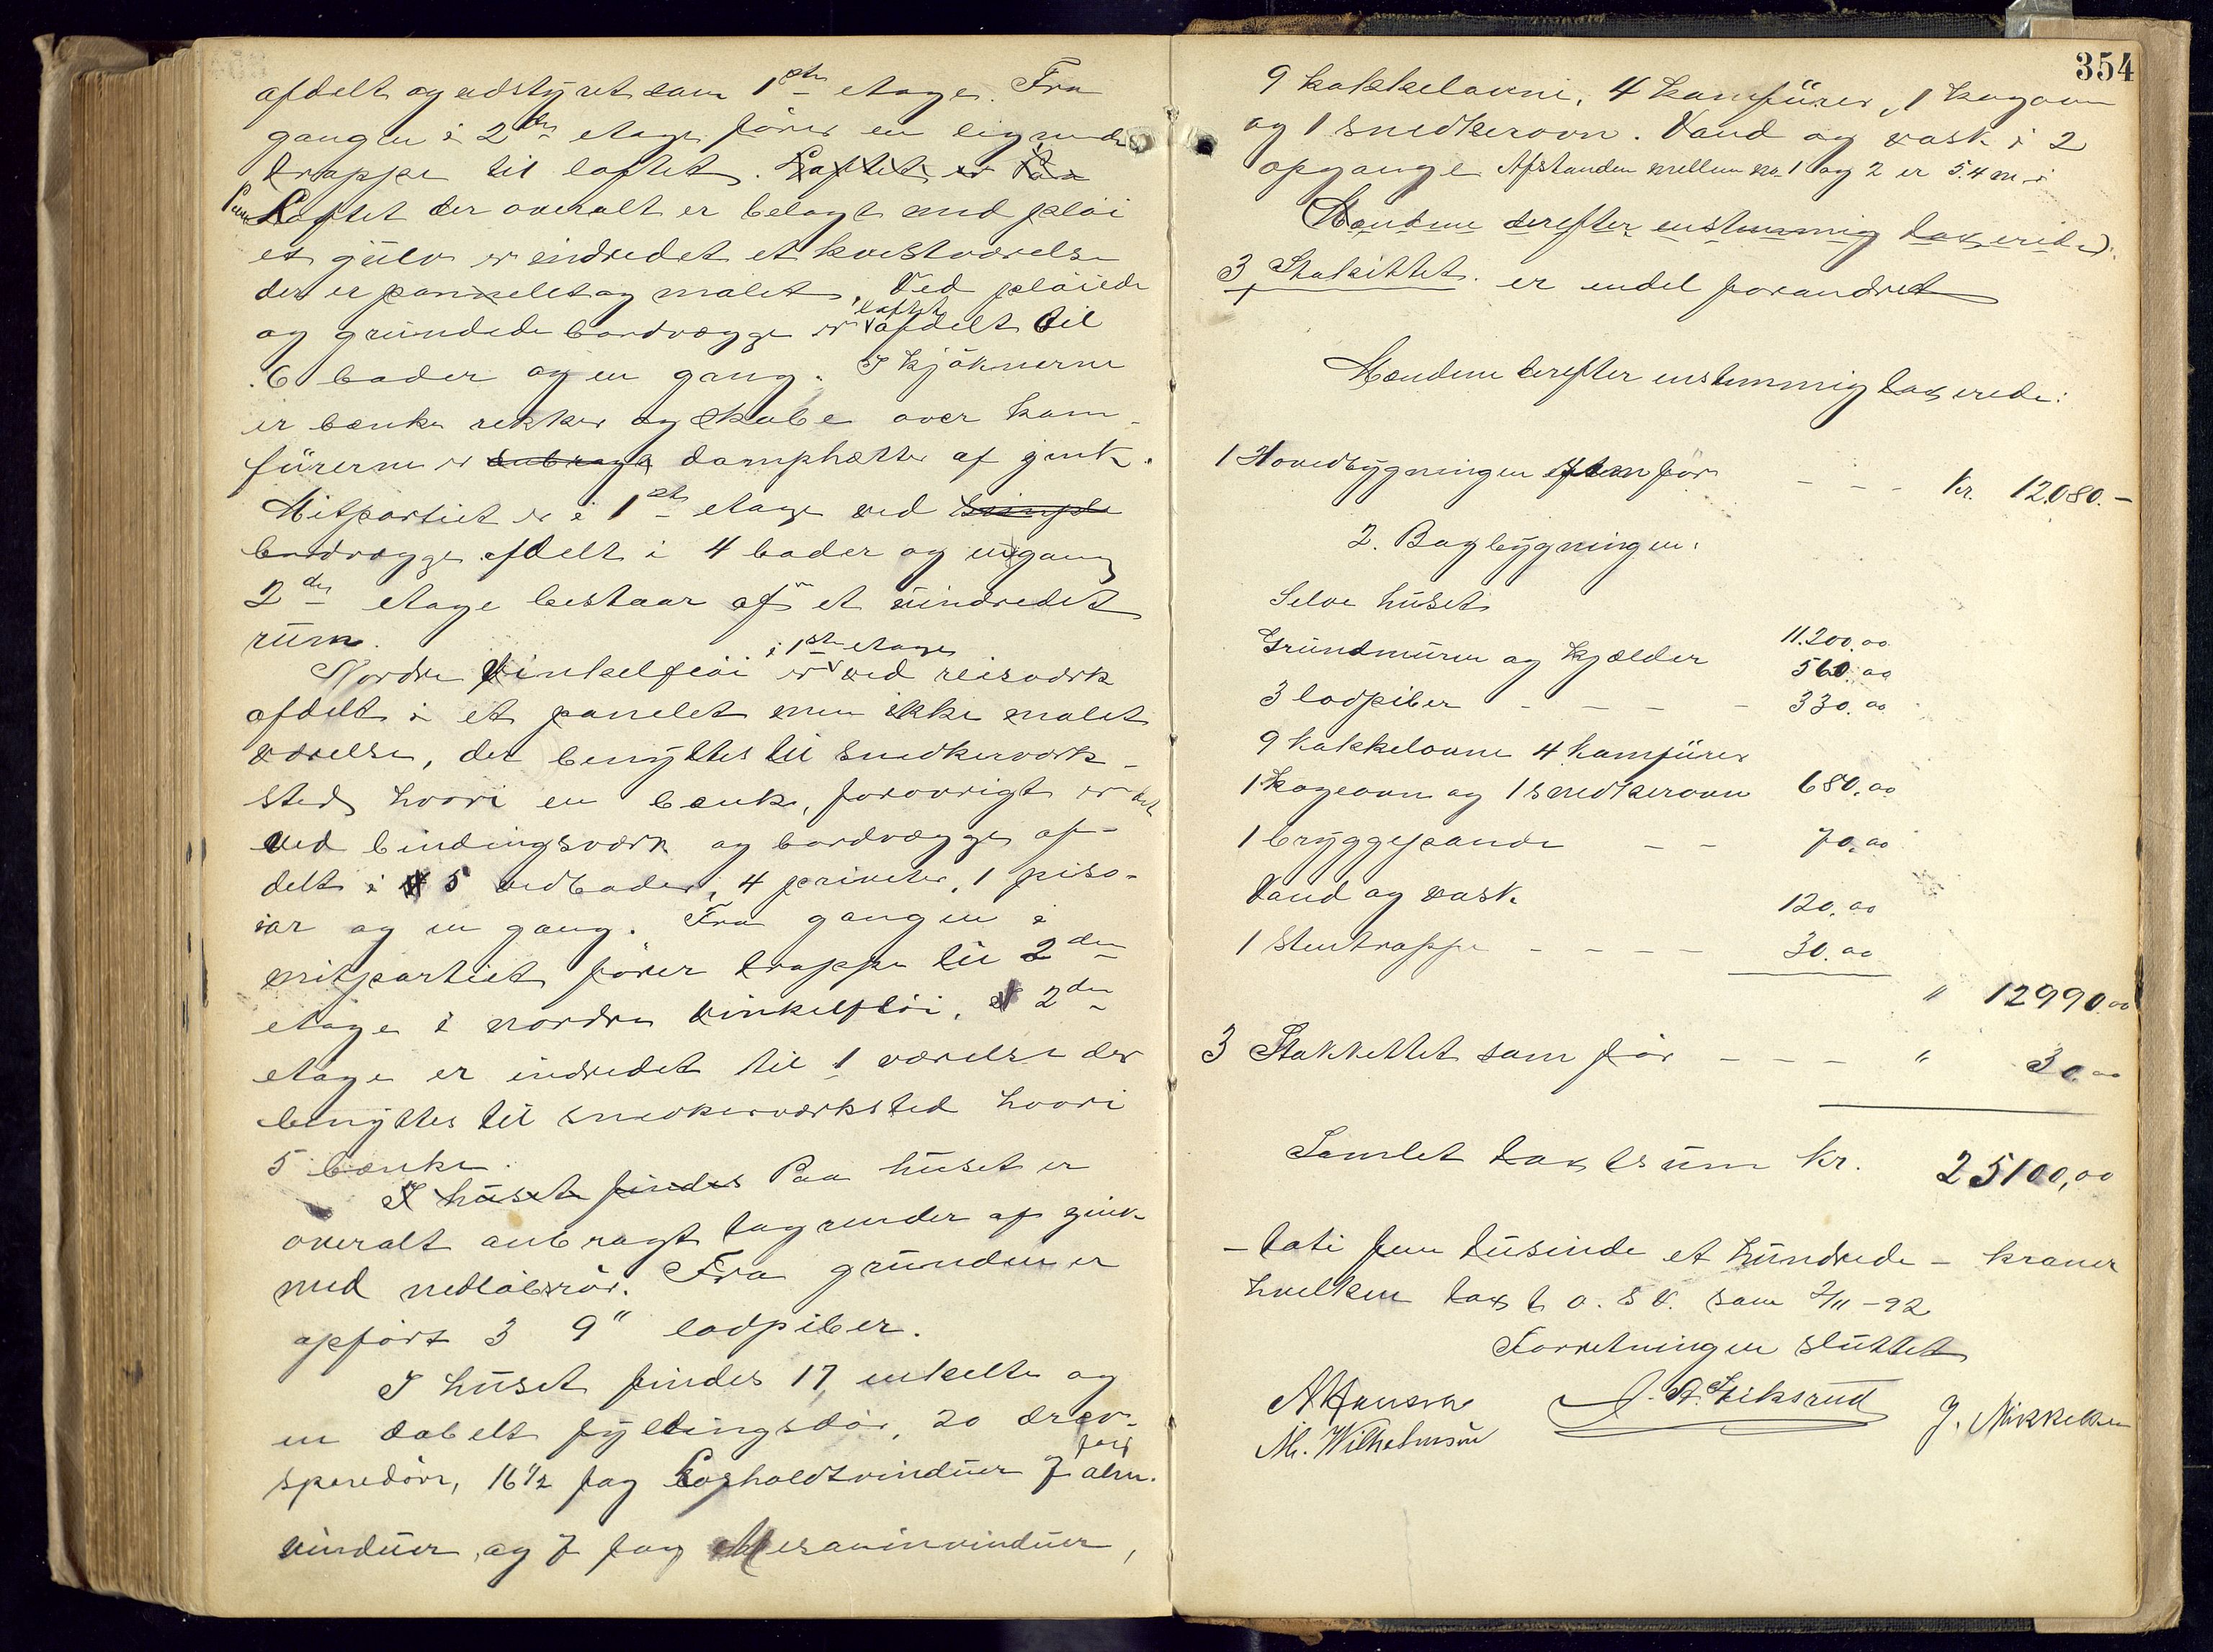 afdelt og udstyret som 1ste etage. Fra
gangen i 2den etage fører en lignende
trappe til loftet. Loftet er Paa
Paa Loftet der overalt er belagt med pløi
et gulv er indredet et kvistværelse
der er pannelet og malet. Ved pløiede
og grundede bordvægge er loftet afdelt til
6 boder og en gang. I kjøknerne
er bænke rekker og skabe over kom-
fürerne er anbragt damphætter af zink.
Mitpartiet er i 1ste etage ved simple
bordvægge afdelt i 4 boder og en gang
2den etage bestaar af et uindredet
rum.
Nordre vinkelfløi er i 1ste etage ved reisværk
afdelt i et panelet men ikke malet
værelse, der benyttes til snedkerværk-
sted hvori en bænk, forøvrigt er det
ved bindingsværk og bordvægge af-
delt i 5 vedboder, 4 priveter, 1 piso-
iar og en gang. Fra gangen i
mitpartiet fører trappe til 2den
etage i nordre vinkelfløi. 2den
etage er indredet til 1 værelse der
benyttes til snedkerværksted hvori
5 bænke.
I huset findes Paa huset er
overalt anbragt tagrender af zink
med nedløbsrør. Fra grunden er
opført 3 9" lodpiber.
I huset findes 17 enkelte og
en dobelt fyldingsdør, 20 drev-
speredøre, 16 1/2 fag Losholdtvinduer 7 fag alm.
vinduer, og 7 fag Mesaninvinduer,
354
9 kakkelovne, 4 komfürer, 1 kogeovn
og 1 snedkerovn. Vand og vask i 2
opgange. Afstanden mellem no 1 og 2 er 5.4 m
Mændene derefter enstemmig taxerede:
3, Stakittet. er endel forandret
Mændene derefter enstemmig taxerede:
1 Hovedbygningen som før - - - Kr. 12080.-
2. Bagbygningen.
Selve huset 11.200.00
Grundmuren og kjælder 560.00
3 lodpiber - - - - 330.00
9 kakkelovne 4 komfürer
1 kogeovn og 1 snedkerovn 680.00
1 bryggepande - - 70.00
Vand og vask 120.00
1 stentrappe - - - - 30.00
" 12990.00
3 Stakkettet som før - - - " 30.00
Samlet taxtsum Kr. 25100,00
- toti fem tusinde et hundrede - kroner
hvilken taxt o. s. v. som 2/11-92
Forretningen sluttet
A Hansen
M. Wilhelmsen
J. Mikkelsen